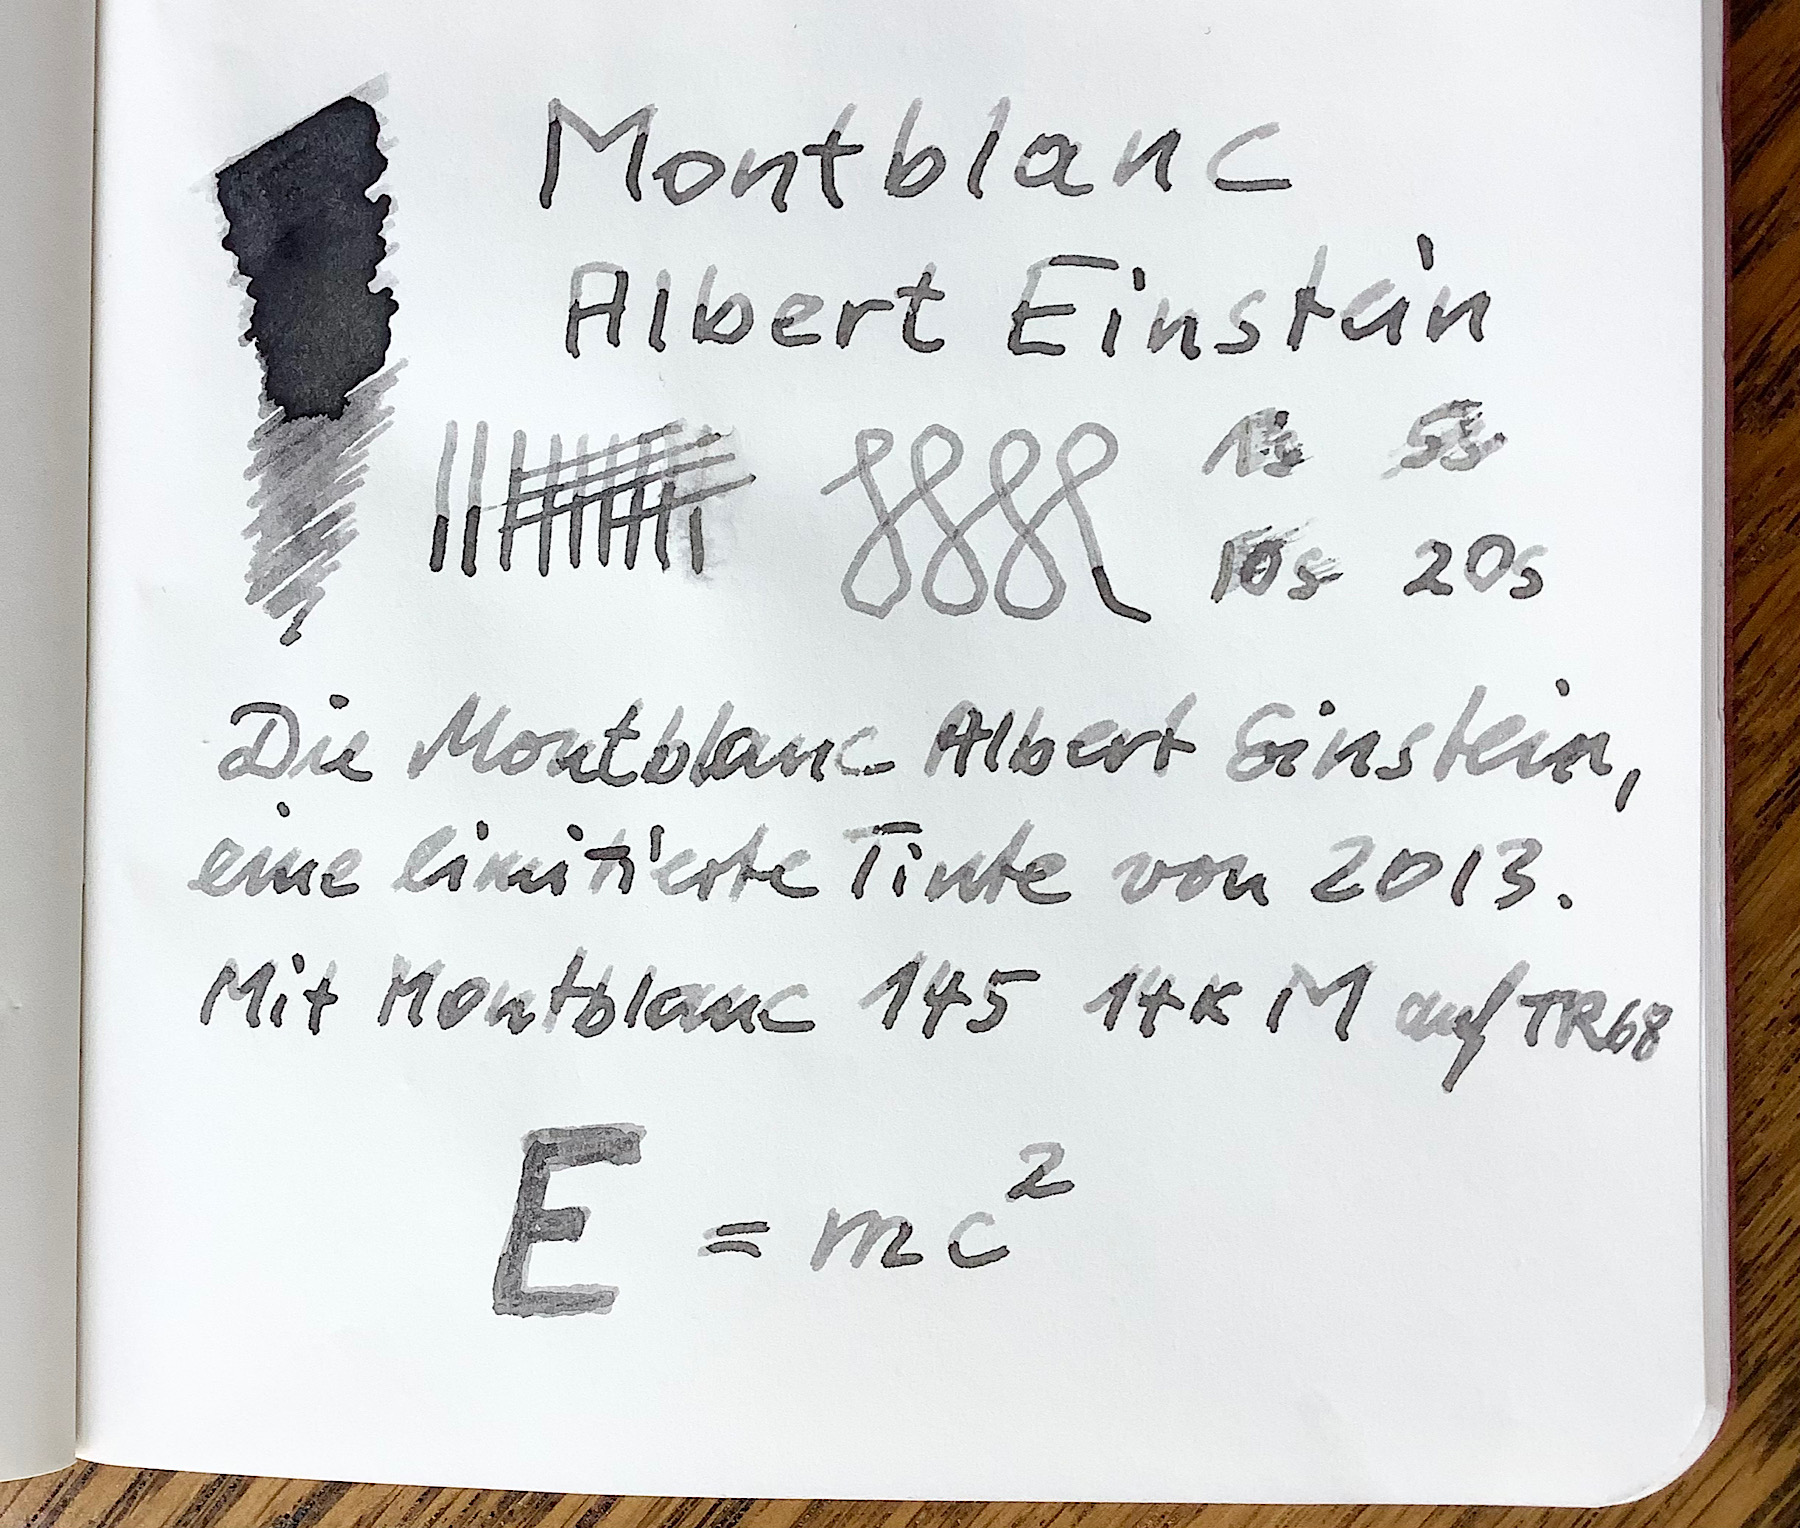 Montblanc
Albert Einstein
1s 5s
10s 20s
Die Montblanc Albert Einstein,
eine limitierte Tinte von 2013.
Mit Montblanc 145 14K M auf TR68
E = mc²